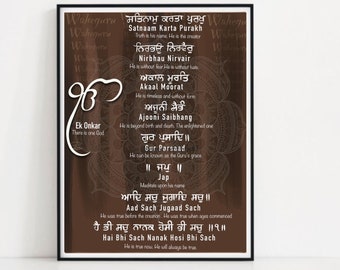 Waheguru Waheguru
ਸਤਿਨਾਮੁ ਕਰਤਾ ਪੁਰਖੁ
Satnaam Karta Purakh
Truth is his name, He is the creator
ਨਿਰਭਉ ਨਿਰਵੈਰੁ
Nirbhau Nirvair
He is without fear He is without turn
ਅਕਾਲ ਮੂਰਤਿ
Akaal Moorat
He is timeless and without form
ਅਜੂਨੀ ਸੈਭੰ
Ajooni Saibhang
He is beyond birth and death, The enlightened one
ੴ
Ek Onkar
There is one God
ਗੁਰ ਪ੍ਰਸਾਦਿ
Gur Parsaad
He can be known as the Guru's grace
॥ ਜਪੁ ॥
Jap
Meditate upon his name
ਆਦਿ ਸਚੁ ਜੁਗਾਦਿ ਸਚੁ
Aad Sach Jugaad Sach
He was true before the creation. He was true when ages commenced
ਹੈ ਭੀ ਸਚੁ ਨਾਨਕ ਹੋਸੀ ਭੀ ਸਚੁ ॥੧॥
Hai Bhi Sach Nanak Hosi Bhi Sach
He is true now, He will always be true